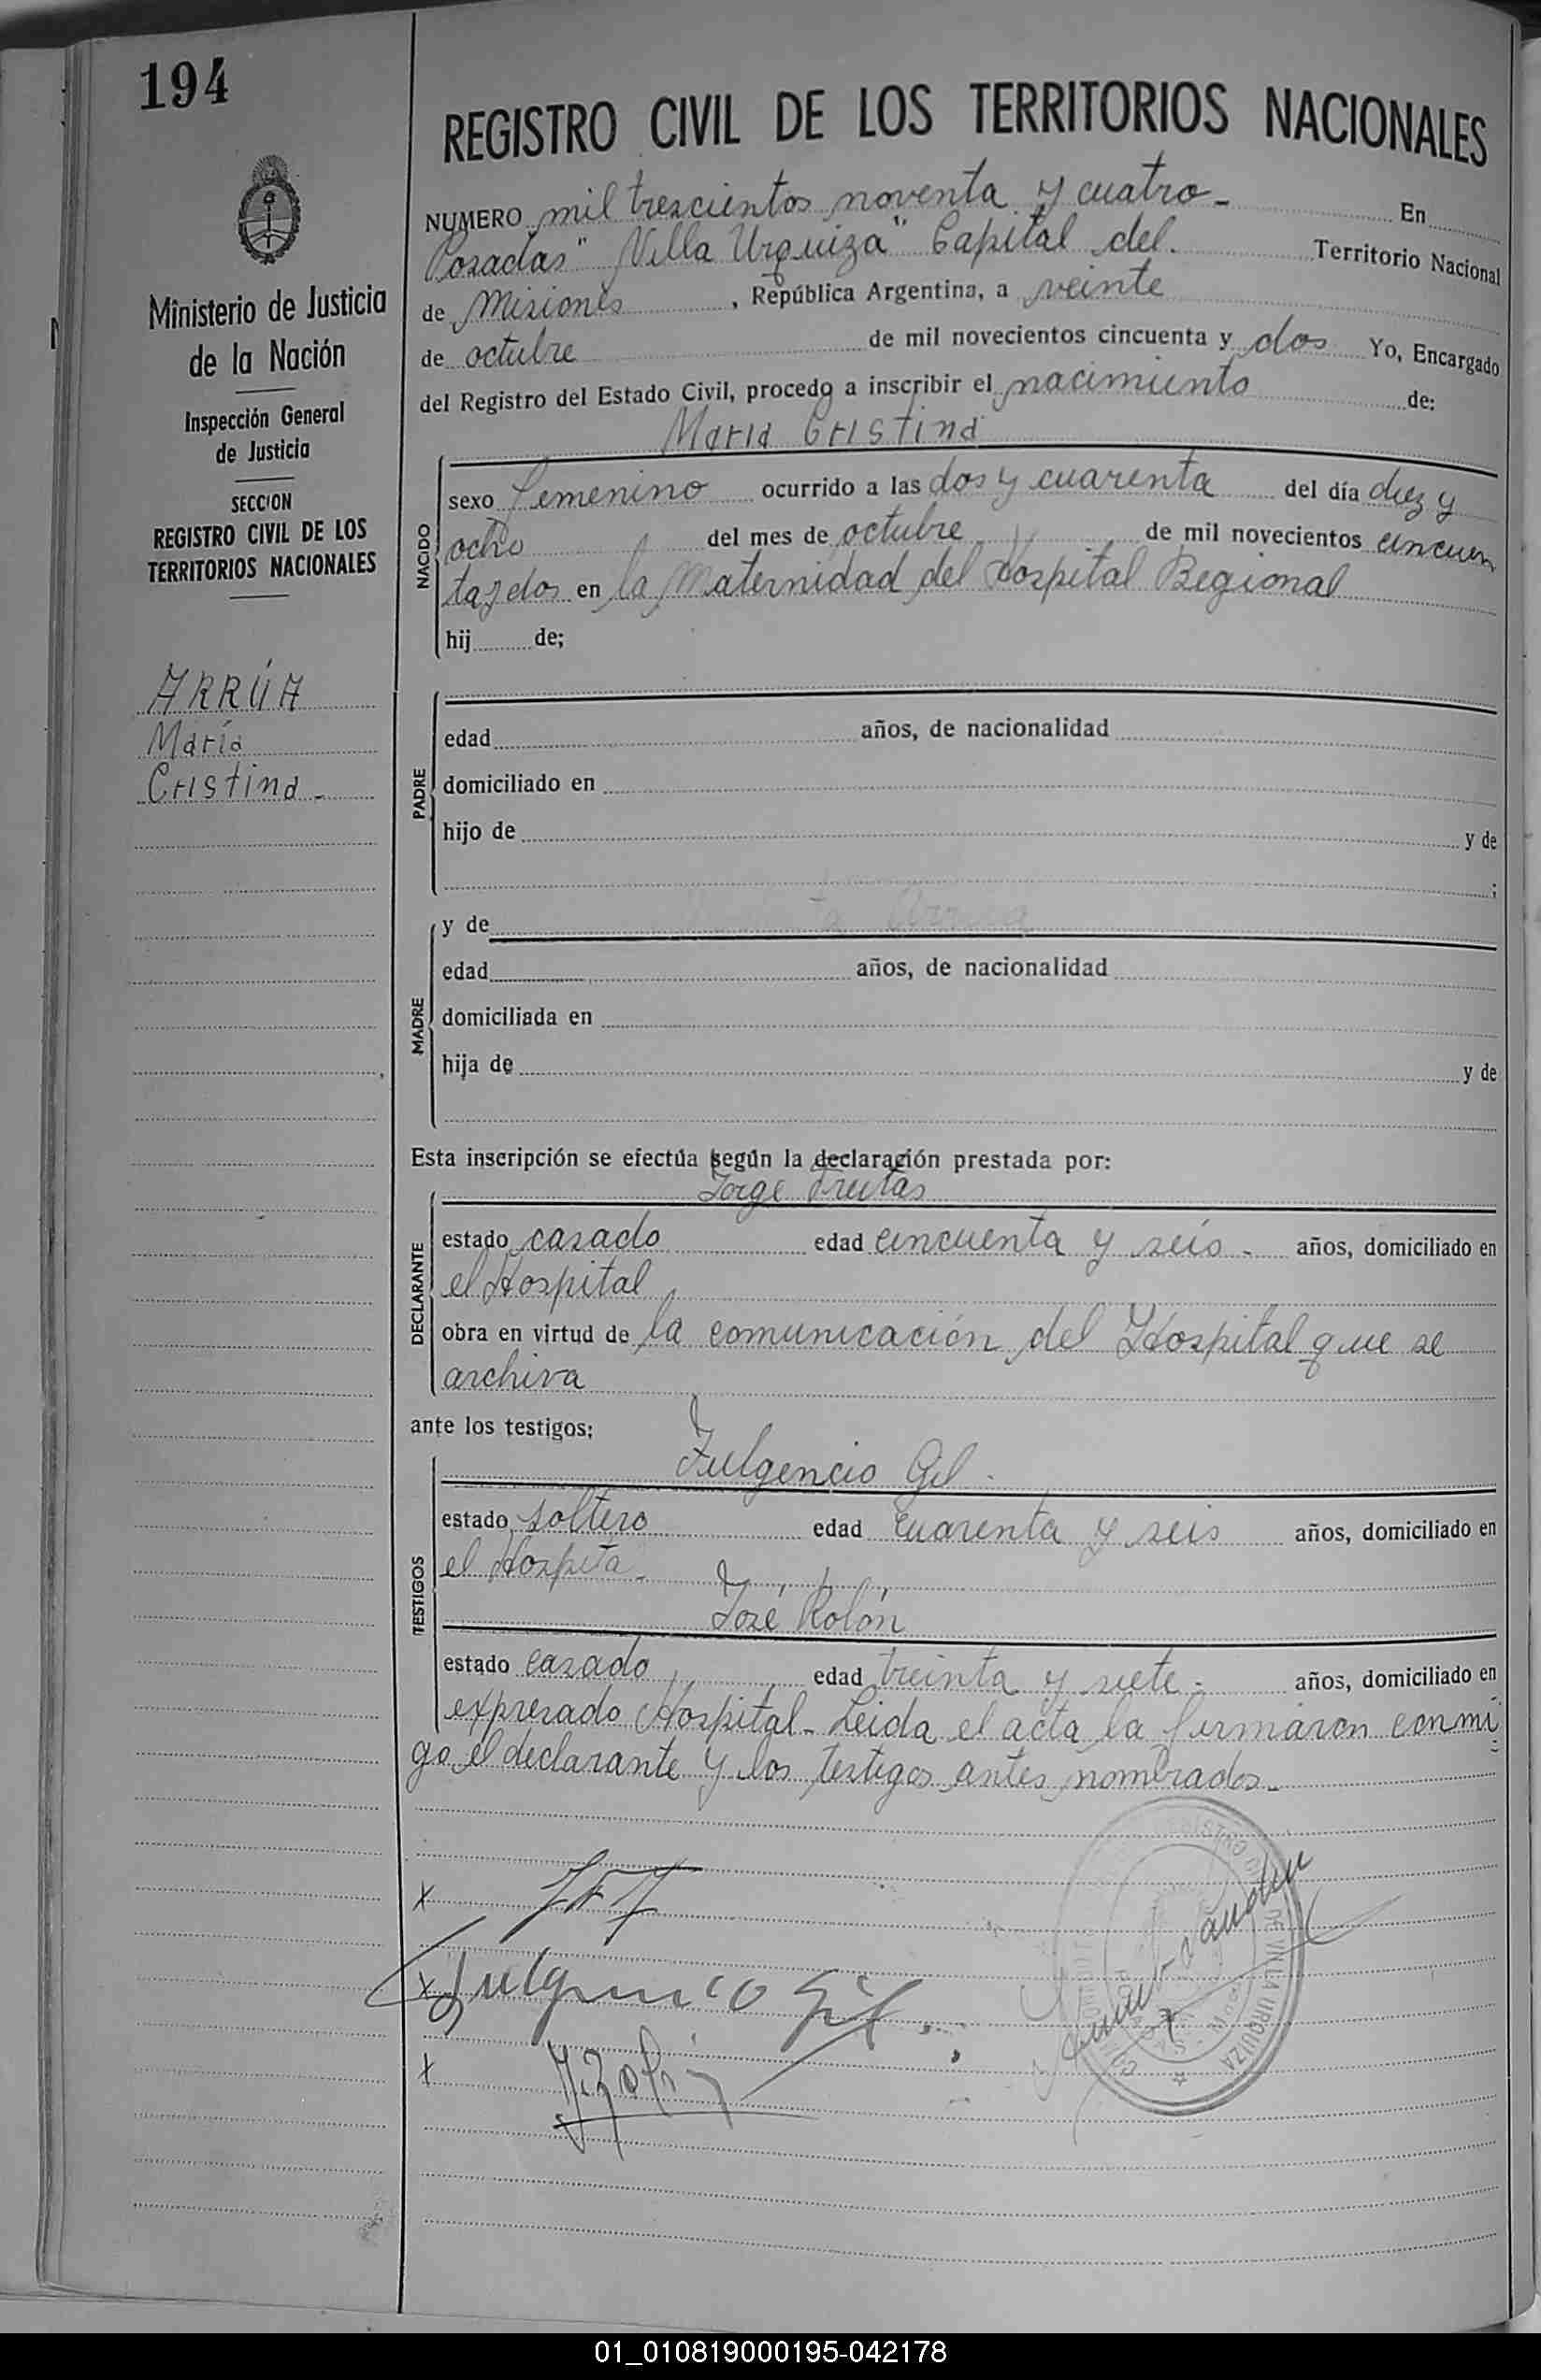 194
REGISTRO CIVIL DE LOS TERRITORIOS NACIONALES
Ministerio de Justicia
de la Nación
Inspección General
de Justicia
SECCION
REGISTRO CIVIL DE LOS
TERRITORIOS NACIONALES
ARRÚA
María
Cristina -
NUMERO mil trescientos noventa y cuatro - En
Posadas "Villa Urquiza" Capital del Territorio Nacional
de Misiones, República Argentina, a veinte
de octubre de mil novecientos cincuenta y dos Yo, Encargado
del Registro del Estado Civil, procedo a inscribir el nacimiento de:
María Cristina
NACIDO
sexo femenino ocurrido a las dos y cuarenta del día diez y
ocho del mes de octubre de mil novecientos cincuen
ta y dos en la Maternidad del Hospital Regional
hij de;
PADRE
edad años, de nacionalidad
domiciliado en
hijo de y de
;
MADRE
y de Arrua
edad años, de nacionalidad
domiciliada en
hija de y de
Esta inscripción se efectúa según la declaración prestada por:
Jorge Freitas
DECLARANTE
estado casado edad cincuenta y seis - años, domiciliado en
el Hospital
obra en virtud de la comunicación del Hospital que se
archiva
ante los testigos;
Fulgencio Gil -
TESTIGOS
estado soltero edad cuarenta y seis años, domiciliado en
el Hospita -
José Rolón
estado casado edad treinta y siete - años, domiciliado en
expresado Hospital - Leida el acta la firmaron conmi
go el declarante y los testigos antes nombrados -
x
x Fulgencio Gil
x
DE VILLA URQUIZA
01_010819000195-042178